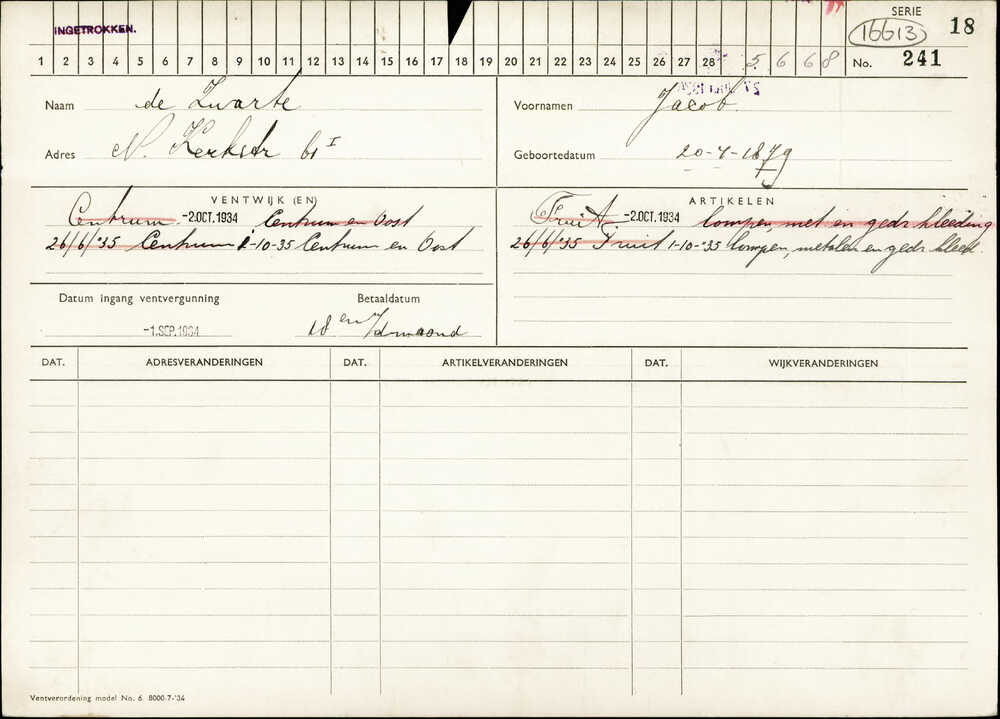 INGETROKKEN.
SERIE
16613 18
1 2 3 4 5 6 7 8 9 10 11 12 13 14 15 16 17 18 19 20 21 22 23 24 25 26 27 28 5 6 6 6 8 No. 241
Naam de Zwarte Voornamen Jacob.
Adres N. Kerkstr 61 I Geboortedatum 20-4-1879
VENTWIJK (EN) ARTIKELEN
Centrum -2 OCT. 1934 Centrum en Oost Fruit -2 OCT. 1934 lompen met en gedr kleeding
26/6/'35 Centrum 1-10-35 Centrum en Oost 26/6/'35 Fruit 1-10-'35 lompen, metalen en gedr kleed.
Datum ingang ventvergunning Betaaldatum
-1. SEP. 1934 18 en
DAT. ADRESVERANDERINGEN DAT. ARTIKELVERANDERINGEN DAT. WIJKVERANDERINGEN
Ventverordening model No. 6. 8000-7-'34